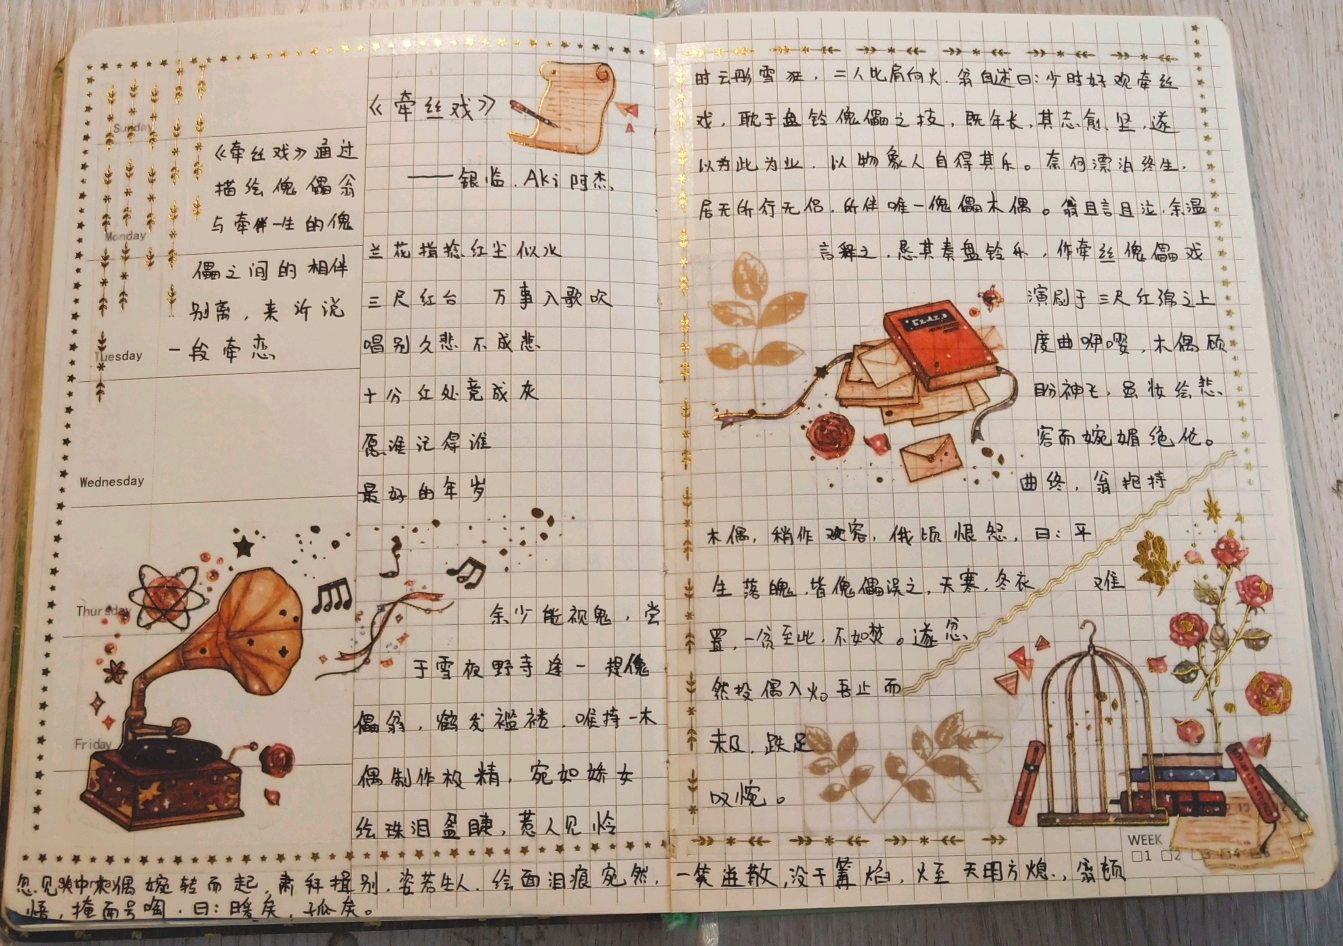 Sunday
Monday
Tuesday
Wednesday
Thursday
Friday
《牵丝戏》通过
描绘傀儡翁
与牵伴一生的傀
儡之间的相伴
别离，来诉说
一段牵恋
《牵丝戏》
——银临．Aki阿杰、
兰花指捻红尘似水
三尺红台 万事入歌吹
唱别久悲不成悲
十分红处竟成灰
愿谁记得谁
最好的年岁
余少能视鬼，尝
于雪夜野寺逢一提傀
儡翁，鹤发褴褛．唯持一木
偶制作极精，宛如娇女
绘珠泪盈睫，惹人见怜
时云彤雪狂，二人比肩向火．翁自述曰：少时好观牵丝
戏，耽于盘铃傀儡之技，既年长，其志愈坚，遂
以为此为业．以物象人自得其乐。奈何漂泊终生．
居无所行无侣，所伴唯一傀儡木偶。翁且言且泣，余温
言释之，恳其奏盘铃乐，作牵丝傀儡戏
演剧于三尺红绵之上
度曲咿嘤，木偶顾
盼神飞，虽妆绘悲
容而婉媚绝伦。
曲终，翁抱持
木偶，稍作欢容，俄顷恨怒，曰：平
生落魄，皆傀儡误之，天寒，冬衣 难
置，一贫至此，不如焚。遂忿
然投偶入火。吾止而
未及，跌足
叹惋。
WEEK
□1 □2 □3 □4
忽见火中木偶婉转而起，肃拜揖别，姿若生人．绘面泪痕宛然，一笑迸散，没于篝焰，火至天明方熄．，翁顿
悟，掩面号啕．曰：暖矣，孤矣。